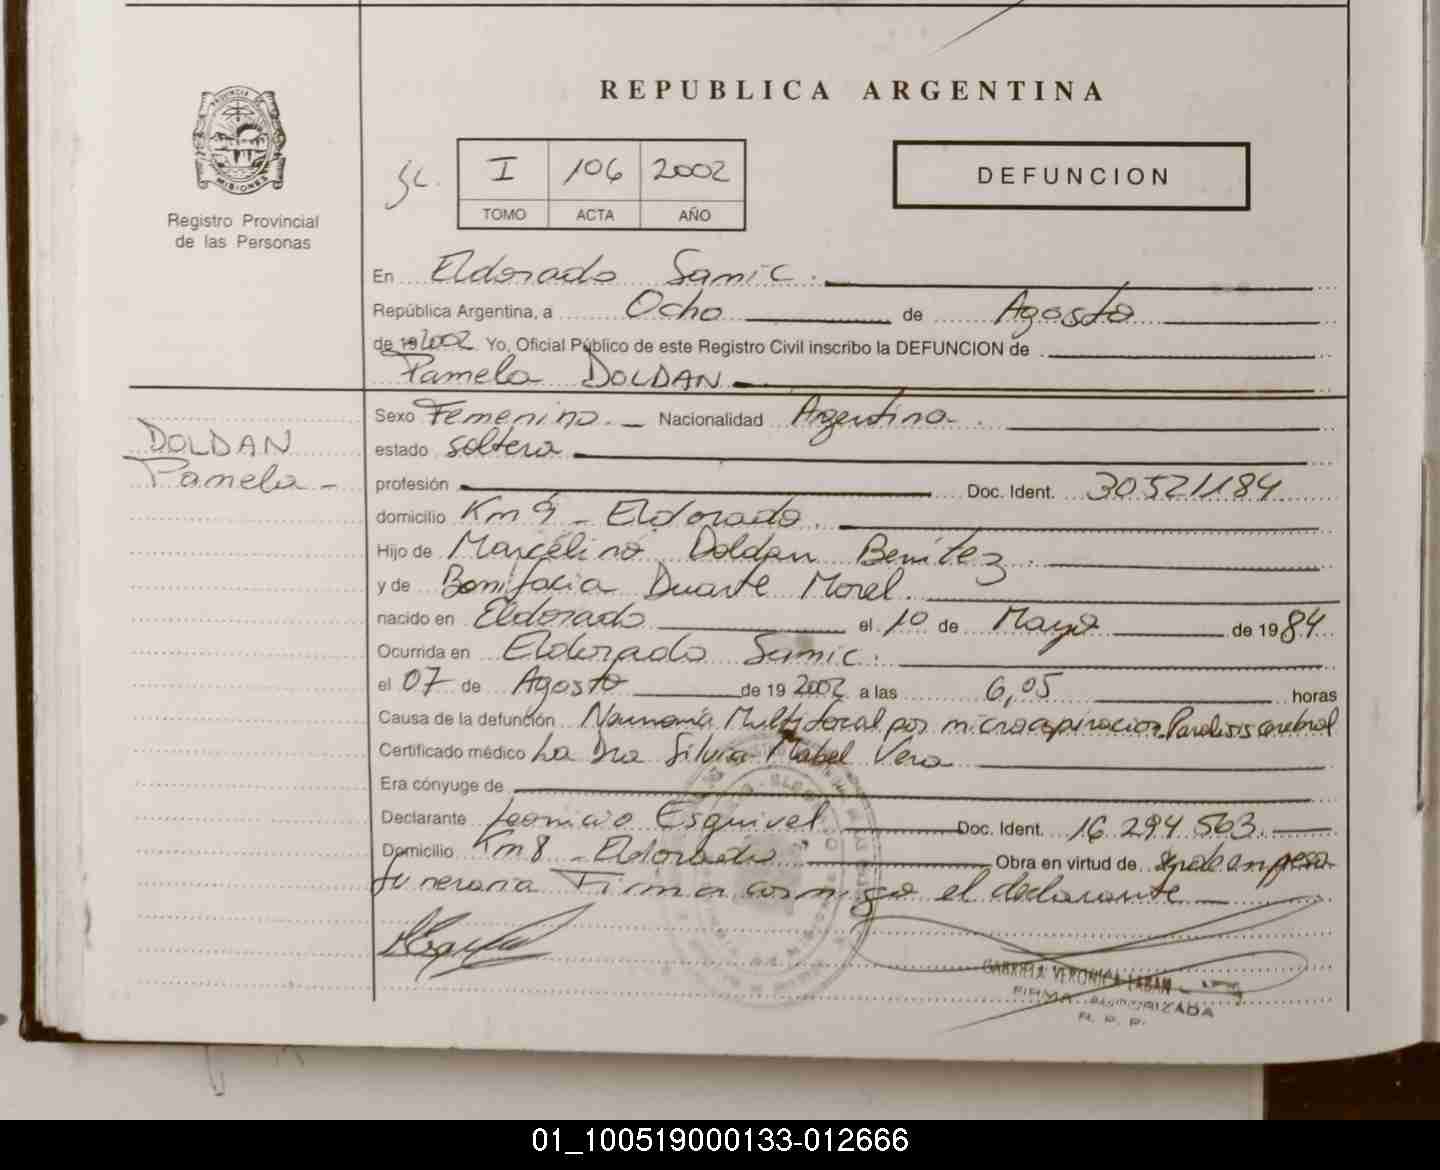 REPUBLICA ARGENTINA
PROVINCIA DE MISIONES
Registro Provincial
de las Personas
I 106 2002
TOMO ACTA AÑO
DEFUNCION
En Eldorado Samic.
República Argentina, a Ocho de Agosto
de 19 2002 Yo, Oficial Público de este Registro Civil inscribo la DEFUNCION de
Pamela DOLDAN
DOLDAN
Pamela
Sexo Femenino. Nacionalidad Argentina.
estado soltera
profesión Doc. Ident. 30521184
domicilio Km 9 - Eldorado.
Hijo de Marcelino Doldan Benitez.
y de Bonifacia Duarte Morel.
nacido en Eldorado el 10 de Mayo de 1984
Ocurrida en Eldorado Samic.
el 07 de Agosto de 19 2002 a las 6,05 horas
Causa de la defunción Multifocal por microaspiracion. Paralisis cerebral
Certificado médico La Dra Silvia Mabel Vera
Era cónyuge de
Declarante Esquivel Doc. Ident. 16.294.563.
Domicilio Km 8 - Eldorado Obra en virtud de empresa
funeraria Firma conmigo el declarante
GABRIELA VERONICA LABAN
FIRMA AUTORIZADA
R. P. P.
01_100519000133-012666